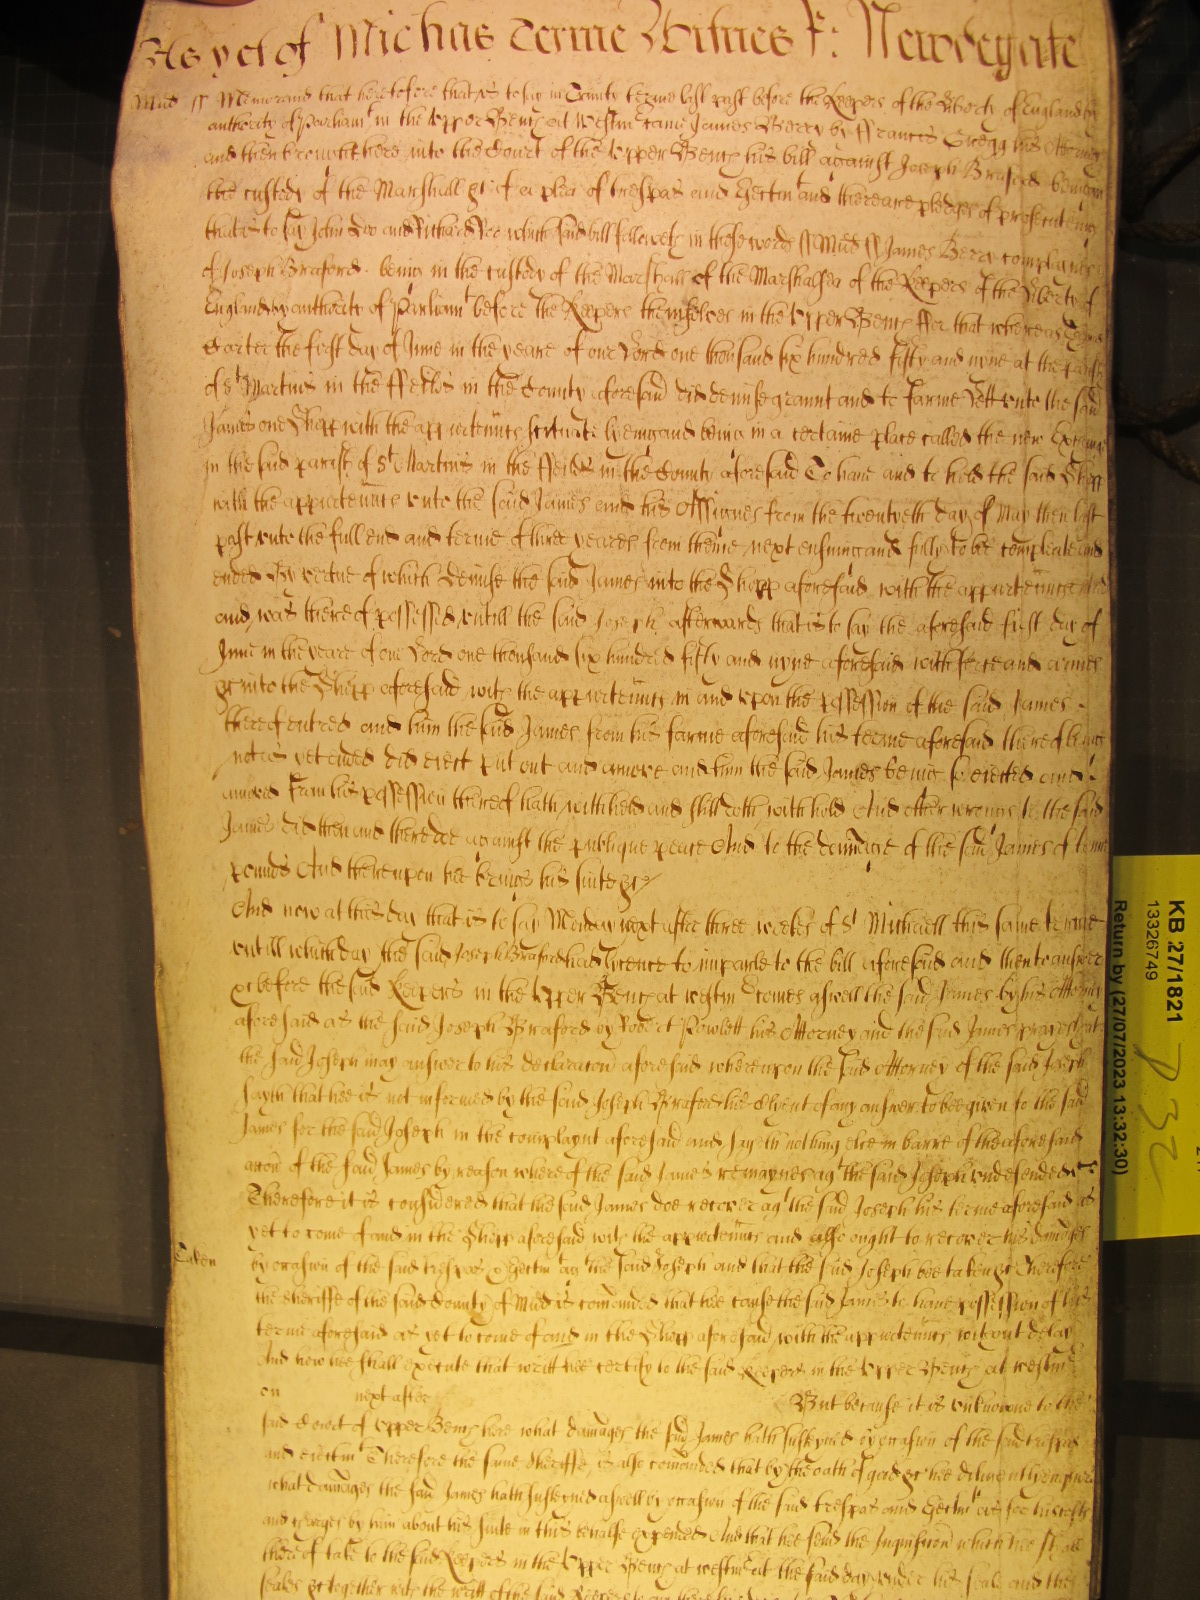 As yet of Michas Terme Witnes R: Newdegate
Midd ss Memorand that heretofore that is to say in Trinity terme last past before the Keepers of the liberty of England by
authority of Parliamt in the Upper Bench att Westm came James Berry by Francis Gregg his Attorney
and then brought here into the Court of the Upper Bench his bill against Joseph Braford being in
the custody of the Marshall &c of a plea of trespas and Eectmt and there are pledges of prosecuteing
that is to say John Doo and Richard Roo which said bill followeth in these words ss Midd ss James Berry complaines
of Joseph Braford being in the custody of the Marshall of the Marshalsea of the Keepers of the Liberty of
England by authority of Parliamt before the Keepers themselves in the Upper Bench For that whereas
Carter the first day of June in the yeare of our Lord one thousand six hundred fifty and nyne at the parish
of St Martins in the Feilds in the County aforesaid did demise graunt and to farme Lett unto the said
James one Shopp with the appurtenncs scituate lyeing and being in a certaine place called the new Exchange
in the said parish of St Martins in the Feilds in the County aforesaid To have and to hold the said Shopp
with the appurtenncs unto the said James and his Assignes from the twentyeth day of May then last
past unto the full end and terme of three yeares from thence next ensuing and fully to be compleate and
ended By vertue of which demise the said James into the Shopp aforesaid with the appurtenncs
and was thereof possessed untill the said Joseph afterwards that is to say the aforesaid first day of
June in the yeare of our Lord one thousand six hundred fifty and nyne aforesaid with force and armes
&c into the Shopp aforesaid with the appurtenncs in and upon the possession of the said James
thereof entred and him the said James from his farme aforesaid his terme aforesaid thereof being
not as yet ended did eiect put out and amove and him the said James being so eiected and
amoved from his possession thereof hath withheld and still doth withhold And other wrongs to the said
James did then and there doe against the publique peace And to the damage of the said James of
pounds And thereupon hee brings his suite &c
And now at this day that is to say Monday next after three weekes of St Michaell this same terme
untill which day the said Joseph Braford had lycence to imparle to the bill aforesaid and then to answer
&c before the said Keepers in the Upper Bench at Westm comes aswell the said James by his Attorney
aforesaid as the said Joseph Braford by Robert Rowlett his Attorney and the said James prayes that
the said Joseph may answer to his declaracon aforesaid whereupon the said Attorney of the said Joseph
sayth that hee is not informed by the said Joseph Braford his Clyent of any answer to bee given to the said
James for the said Joseph in the complaynt aforesaid and sayth nothing else in barre of the aforesaid
accon of the said James by reason whereof the said James remaynes agt the said Joseph undefended &c
Therefore it is considered that the said James doe recover agt the said Joseph his terme aforesaid as
yet to come of and in the Shopp aforesaid with the appurtenncs and also ought to recover his damages
Taken
by occasion of the said trespas & Eectmt agt the said Joseph and that the said Joseph bee taken &c Therefore
the Sheriffe of the said County of Midd is comanded that hee cause the said James to have possession of his
terme aforesaid as yet to come of and in the Shopp aforesaid with the appurtenncs without delay
And how hee shall execute that writt hee certify to the said Keepers in the Upper Bench at Westm
on next after But because it is unknowne to the
said Court of Upper Bench here what damages the said James hath susteyned by occasion of the said trespas
and eiectmt Therefore the same Sheriffe is also comanded that by the oath of good &c hee diligently enquire
what damages the said James hath susteyned aswell by occasion of the said trespas and Eectmt as for his costs
and charges by him about his suite in this behalfe expended And that hee send the Inquisicon which hee shall
thereof take to the said Keepers in the Upper Bench at Westm at the said day under his seale and the
seales &c together with the writt of the said Keepers to
KB 27/1821
13326749
Return by (27/07/2023 13:32:30)